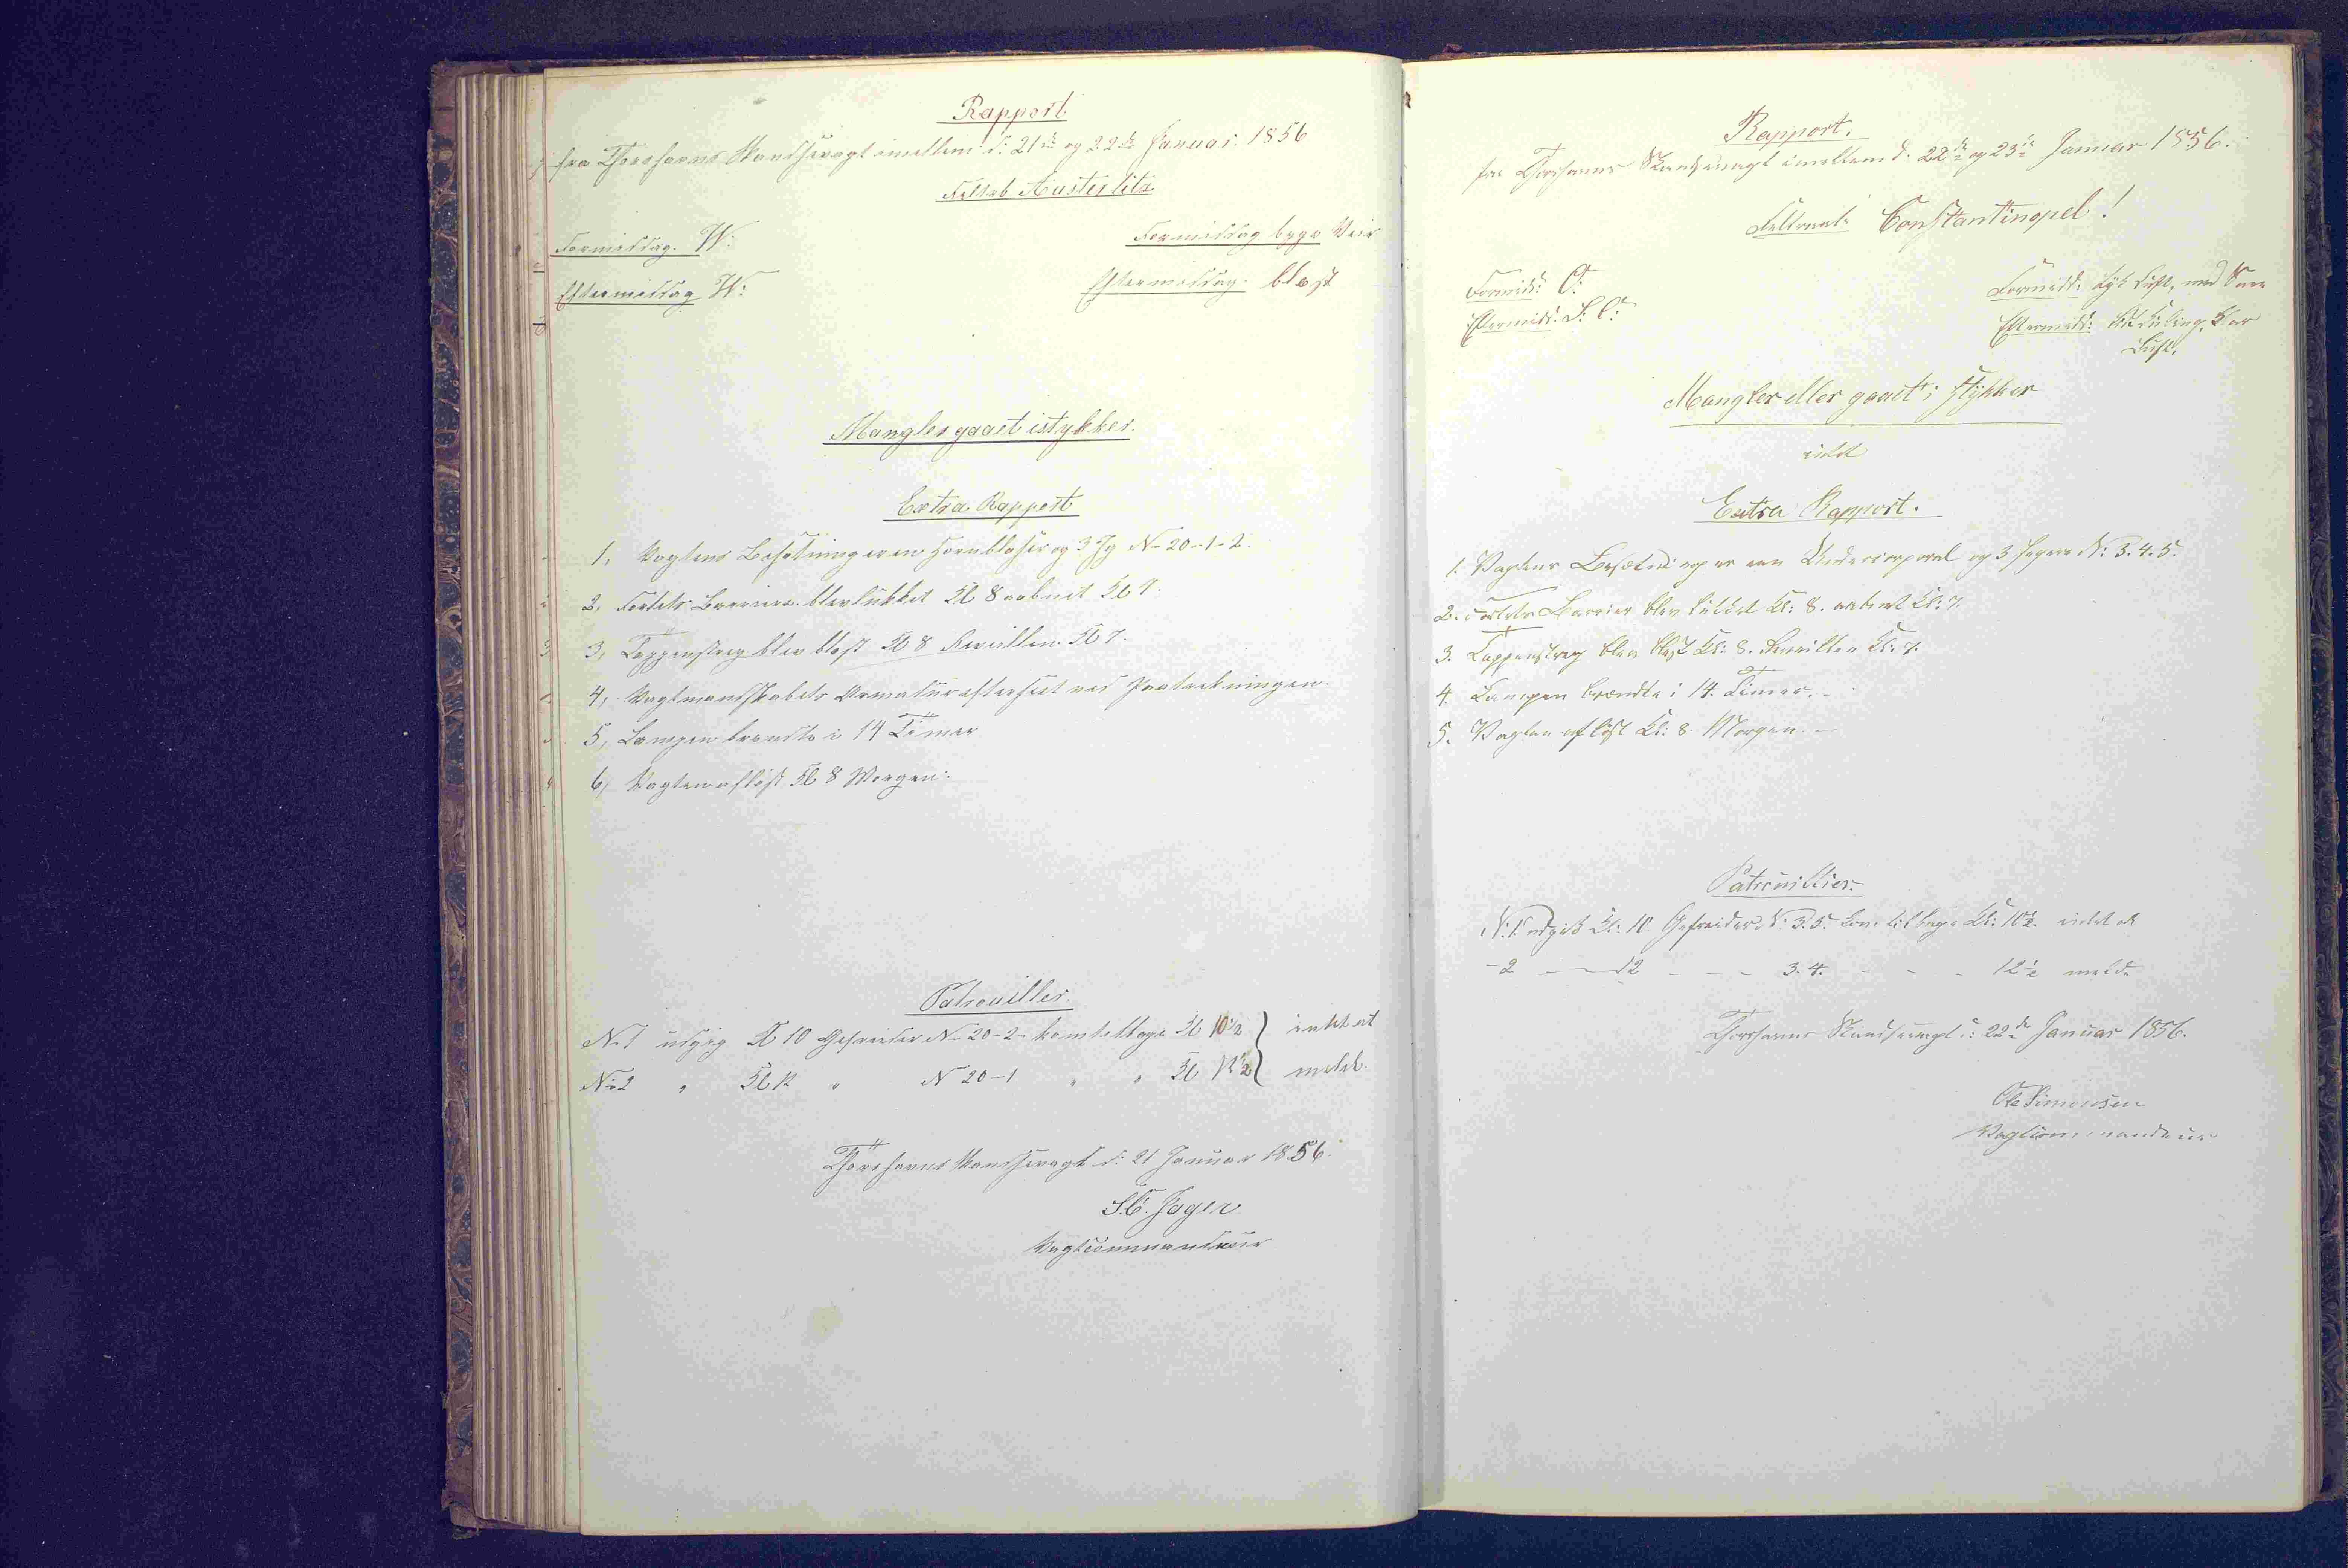 Rapport.
fra Thorshavns Skandsevagt imellem d: 21de og 22de Januar. 1856
Feltrb Austerlitz.
Formiddag. W: Formiddag byge Veir
Eftermiddag W: Eftermiddag. blæst
Mangler gaaet istykker.
Extra Rapport
1, Vagtens Besætning er en Hornblæser og 3 Jg No 20-1-2.
2, Fortets Barriere blev lukket Kl 8 aabnet Kl 7.
3, Tappenstreg blev blæst Kl 8 Reveillen Kl 7.
4, Vagtmandskabets Armatur efterseet ved Paatrækningen.
5, Lampen brændte i 14 Timer
6, Vagten afløst Kl 8 Morgen.
Patrouiller.
No 1 udgig Kl 10 Gefreider No 20-2- kom tilbage Kl 10½ } intet at
No 2 " Kl 12 " N 20-1 " " Kl 12½ } melde.
Thorshavns Skandsevagt d: 21 Januar 1856.
S.C. Jager
Vagtcommandeur
Rapport.
fra Thorshavns Skandsevagt imellem d. 22de og 23de Januar 1856.
Feltraab: Constantinopel!
Formidd: O: Formidd: tyk Luft, med Snee
Eftermidd: S: O: Eftermidd: Kuling, klar
Luft.
Mangler eller gaaet i stykker
intet
Extra Rapport.
1. Vagtens Besætning er een Undercorporal og 3 Jegere N: 3. 4. 5.
2. Fortets Barrier blev lukket Kl: 8. aabnet Kl: 7.
3. Tappenstreg blev blæst Kl: 8. Reveillen Kl: 7.
4. Lampen brændte i 14. Timer. -
5. Vagten afløst Kl: 8. Morgen. -
Patrouillier.
N: 1. udgik Kl: 10. Gefreider N: 3. 5. kom tilbage Kl: 10½. intet at
- 2 - - 12 - - - 3. 4. - - - 12½ melde
Thorshavns Skandsevagt d: 22de Januar 1856.
Ole Simonsen
Vagtcommandeur